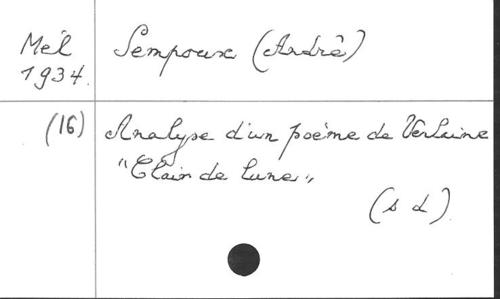 Mél Sempoux (André)
1934.
(16) Analyse d'un poème de Verlaine
"Clair de lune„
(s d).